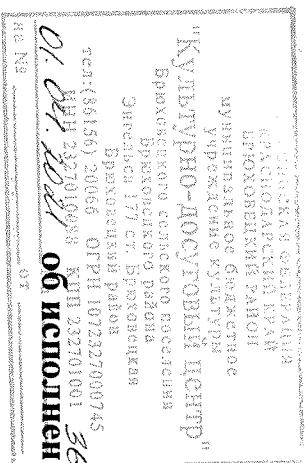 РОССИЙСКАЯ ФЕДЕРАЦИЯ
КРАСНОДАРСКИЙ КРАЙ
БРЮХОВЕЦКИЙ РАЙОН
муниципальное бюджетное
учреждение культуры
"Культурно-досуговый центр"
Брюховецкого сельского поселения
Брюховецкого района
Энгельса 177 ст. Брюховецкая
Брюховецкий район
тел:(86156) 21066 ОГРН 1072327000745
КПП 232701001
01.04.2021 36
на № от
об исполнен